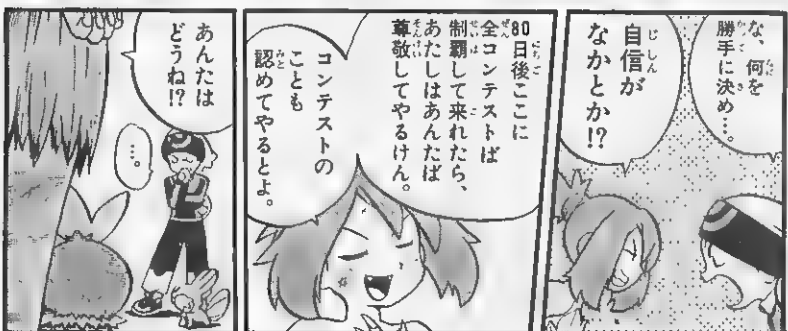 な、何を
勝手に決め…。
自信が
なかとか!?
80日後ここに
全コンテストば
制覇して来れたら、
あたしはあんたば
尊敬してやるけん。
コンテストの
ことも
認めてやるとよ。
あんたは
どうね!?
…。